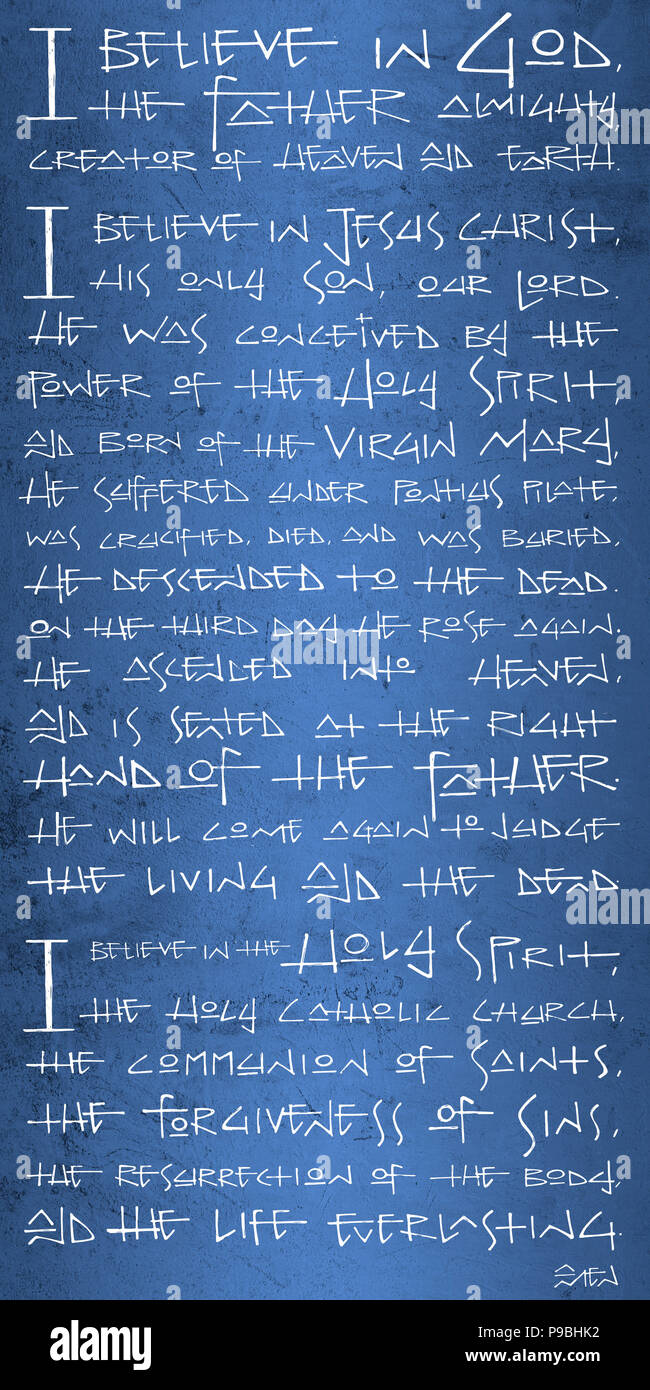 I BELIEVE IN GOD,
THE FATHER ALMIGHTY,
CREATOR OF HEAVEN AND EARTH.
I BELIEVE IN JESUS CHRIST,
HIS ONLY SON, OUR LORD.
HE WAS CONCEIVED BY THE
POWER OF THE HOLY SPIRIT,
AND BORN OF THE VIRGIN MARY,
HE SUFFERED UNDER PONTIUS PILATE,
WAS CRUCIFIED, DIED, AND WAS BURIED.
HE DESCENDED TO THE DEAD.
ON THE THIRD DAY HE ROSE AGAIN.
HE ASCENDED INTO HEAVEN,
AND IS SEATED AT THE RIGHT
HAND OF THE FATHER.
HE WILL COME AGAIN TO JUDGE
THE LIVING AND THE DEAD.
I BELIEVE IN THE HOLY SPIRIT,
THE HOLY CATHOLIC CHURCH,
THE COMMUNION OF SAINTS,
THE FORGIVENESS OF SINS,
THE RESURRECTION OF THE BODY,
AND THE LIFE EVERLASTING.
AMEN
alamy
alamy
alamy
alamy stock photo
P9BHK2
www.alamy.com